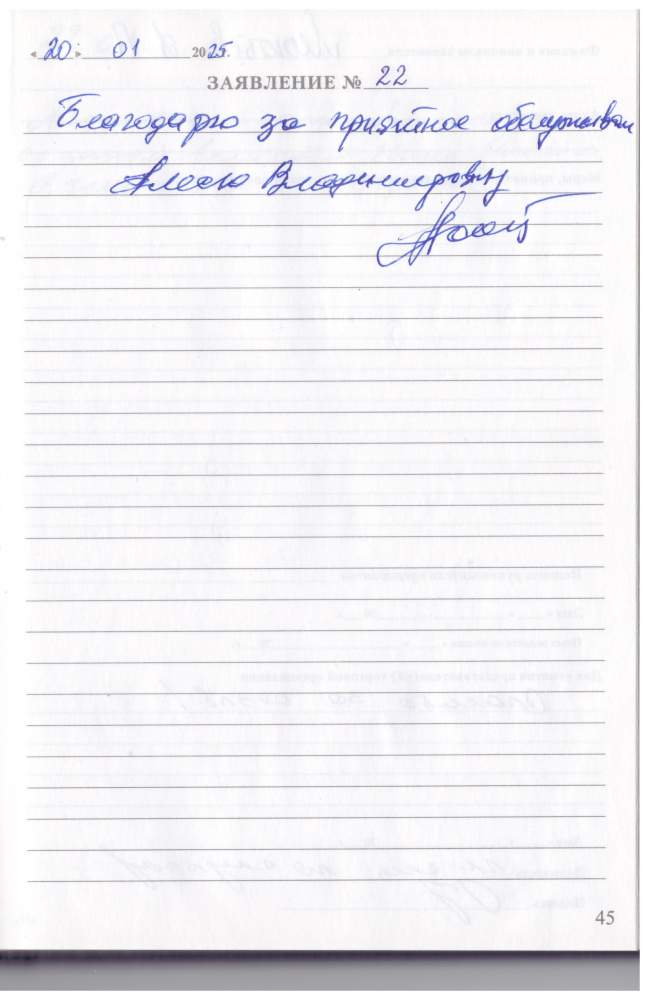 « 20 » 01 2025.
ЗАЯВЛЕНИЕ № 22
Благодарю за приятное обслуживан
Алесю Владимировну
45